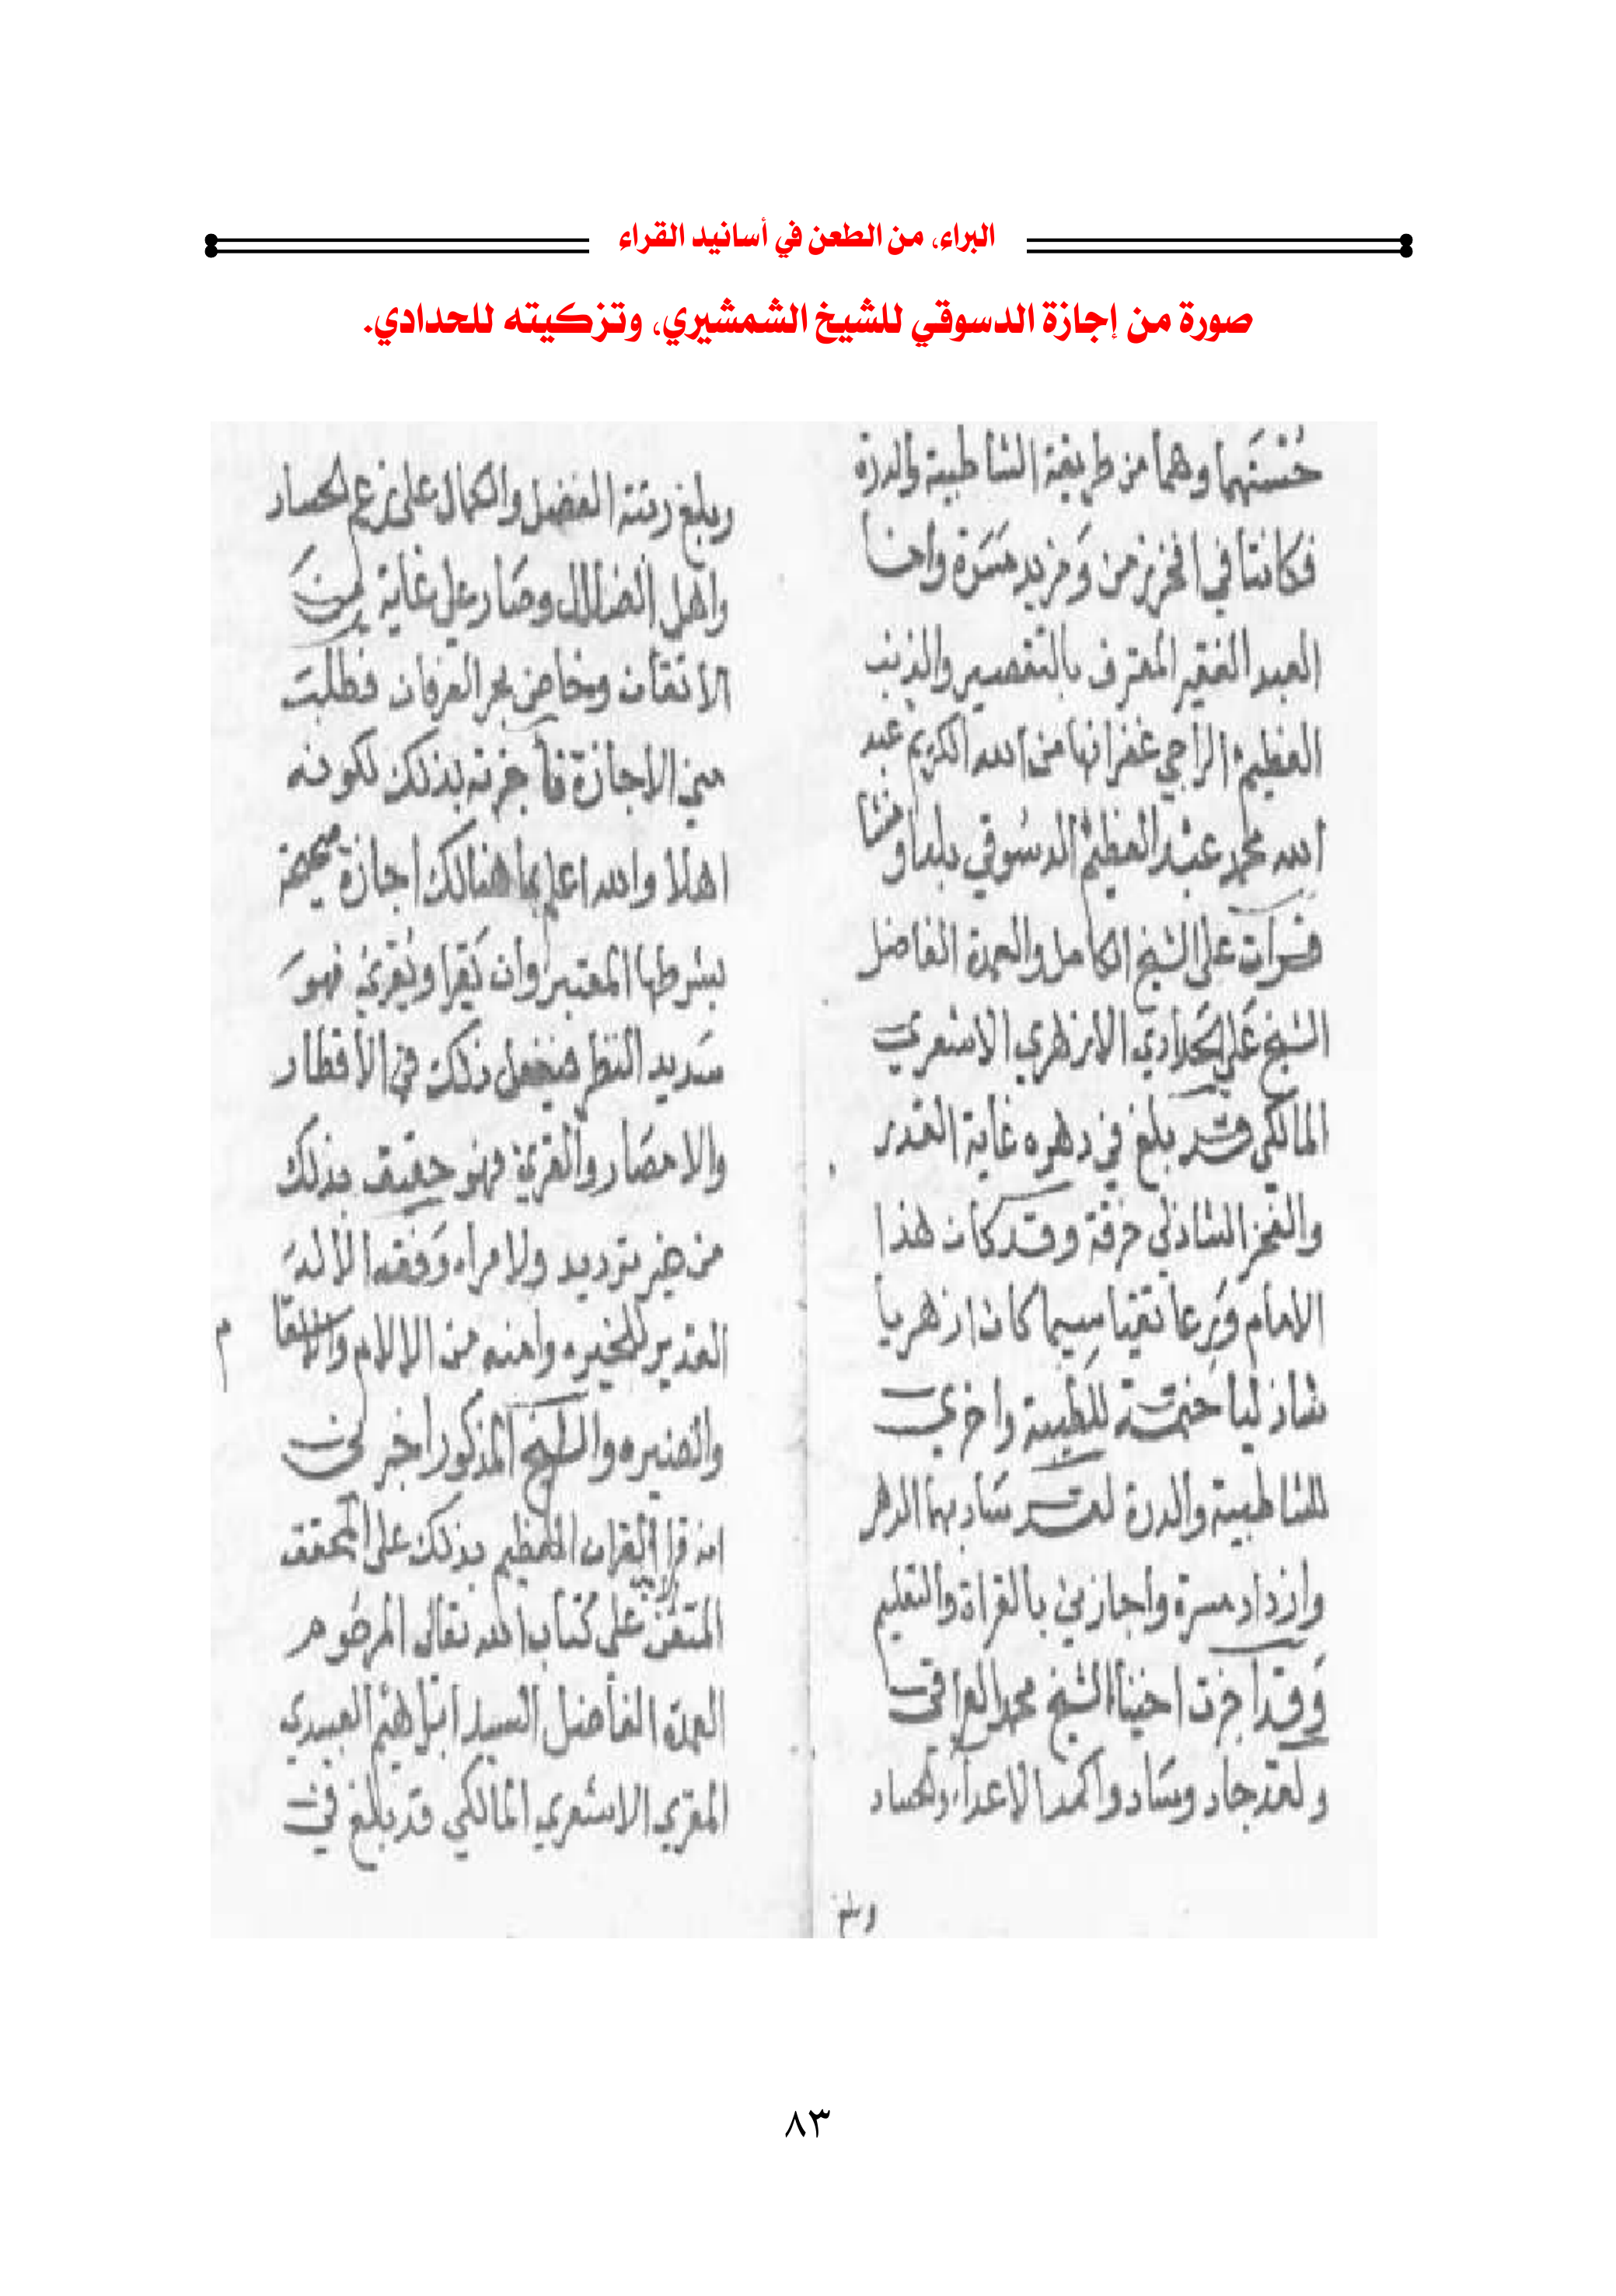 البراء، من الطعن في أسانيد القراء
صورة من إجازة الدسوقي للشيخ الشمشيري، وتزكيته للحدادي.
وهما من طريقة الشاطبية والدرة
فكانتا في
العبد الفقير المعترف بالتقصير والذنب
العظيم الراجي غفرانها من الله الكريم عبد
الله محمد عبد العظيم الدسوقي بلدا ومنشا
قرات على الشيخ الكامل والعمدة الفاضل
الشيخ على الحدادي الازهري الاشعري
المالكي قد بلغ في دهره غاية القدر
والفخر الشاذلي خرقة وقد كان هذا
الامام ورعا تقيا سيما كان ازهريا
شاذليا ختمة للطيبة واخرى
للشاطبية والدرة لقد ساد بها الدهر
وازداد مسرة واجازني بالقراة والتعليم
وقد اجزت اخينا الشيخ محمد العراقي
ولقد جاد وساد واكمد الاعداء والحساد
وبلغ
وبلغ رتبة الفضل والكمال على زعم الحساد
واهل الضلال وصار على غاية من
الاتقان وخاض بحر العرفان فطلبت
مني الاجازة فاجزته بذلك لكونه
اهلا والله اعلم بما هنالك اجازة صحيحة
بشرطها المعتبر وان يقرا ويقري فهو
سديد النظر فيفعل ذلك في الاقطار
والامصار والقرى فهو حقيق بذلك
من غير ترديد ولا مراء وفقه الاله
القدير للخيره وامنه من الالام
والضيره والشيخ المذكور اخبرني
انه قرا القران العظيم بذلك على المحقق
المتقن على كتاب الله تعالى المرحوم
العمدة الفاضل السيد ابراهيم العبيدي
المقري الاشعري المالكي قد بلغ في
٨٣